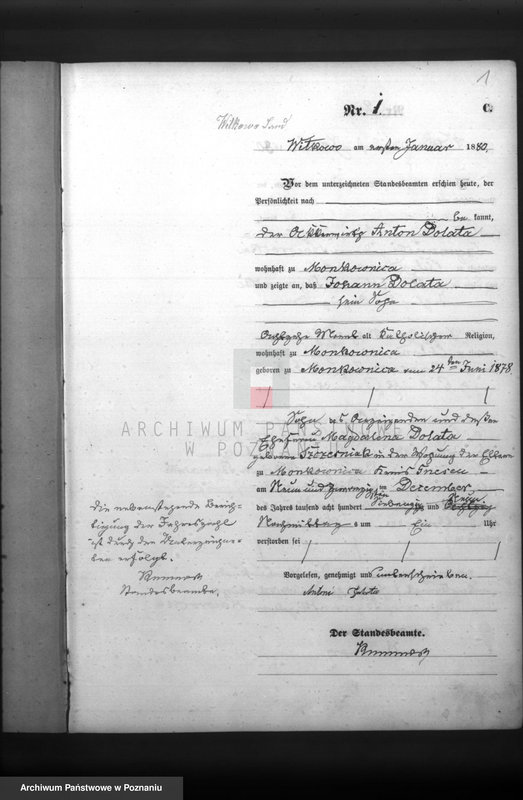 1
Nr. 1. C.
Witkowo Land
Witkowo am ersten Januar 1880.
Vor dem unterzeichneten Standesbeamten erschien heute, der
Persönlichkeit nach
be kannt,
der Ackerwirth Anton Dolata
wohnhaft zu Monkownica
und zeigte an, daß Johann Dolata
sein Sohn
Achtzehn Monat alt katholischer Religion,
wohnhaft zu Monkownica
geboren zu Monkownica am 24ten Juni 1878
Sohn des Anzeigenden und dessen
Ehefrau Magdalena Dolata
geborene Szczesniak in der Wohnung der Eltern
zu Monkownica Kreis Gnesen
am Neun und zwanzigsten Dezember
des Jahres tausend acht hundert Siebenzig und Neun
Nachmittag s um Ein Uhr
verstorben sei
Vorgelesen, genehmigt und unterschrieben.
Antoni Dolata
Der Standesbeamte.
Die nebenstehende Berich-
tigung der Jahreszahl
ist durch den Unterzeichne-
ten erfolgt.
Standesbeamte.
ARCHIWUM PAŃSTWOWE
W POZNANIU
Archiwum Państwowe w Poznaniu